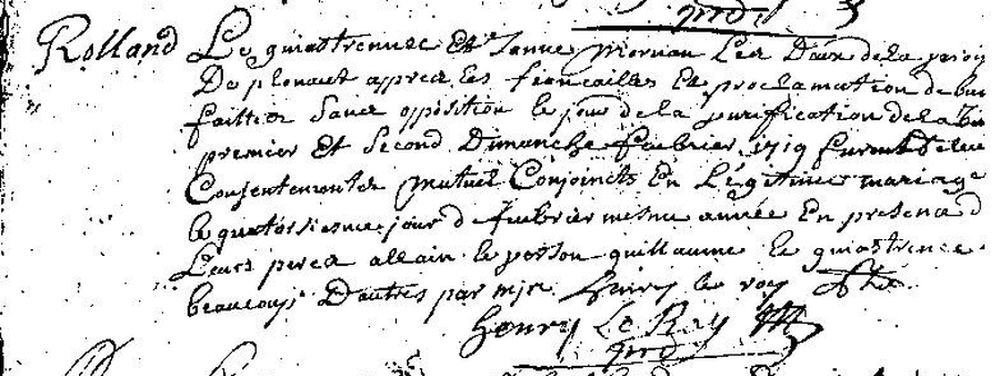 Rolland Le guiastrennec Et Janne morvan Les Deux de la paroi
De plouaret apprea les fiencailles Et proclamation de bans
faittes sance opposition le jour de la purification de la Vie
premier Et Second Dimanche feubrier 1719 furent de leur
Consentemente mutuel Conjoincts En Légitime mariage
le quatorsiesme jour de feubrier mesme année En presence d
Leurs perea allain le person guillaume le guiastrenec
beaucoup D'autres par moy Henry le roy
Henry Le Roy